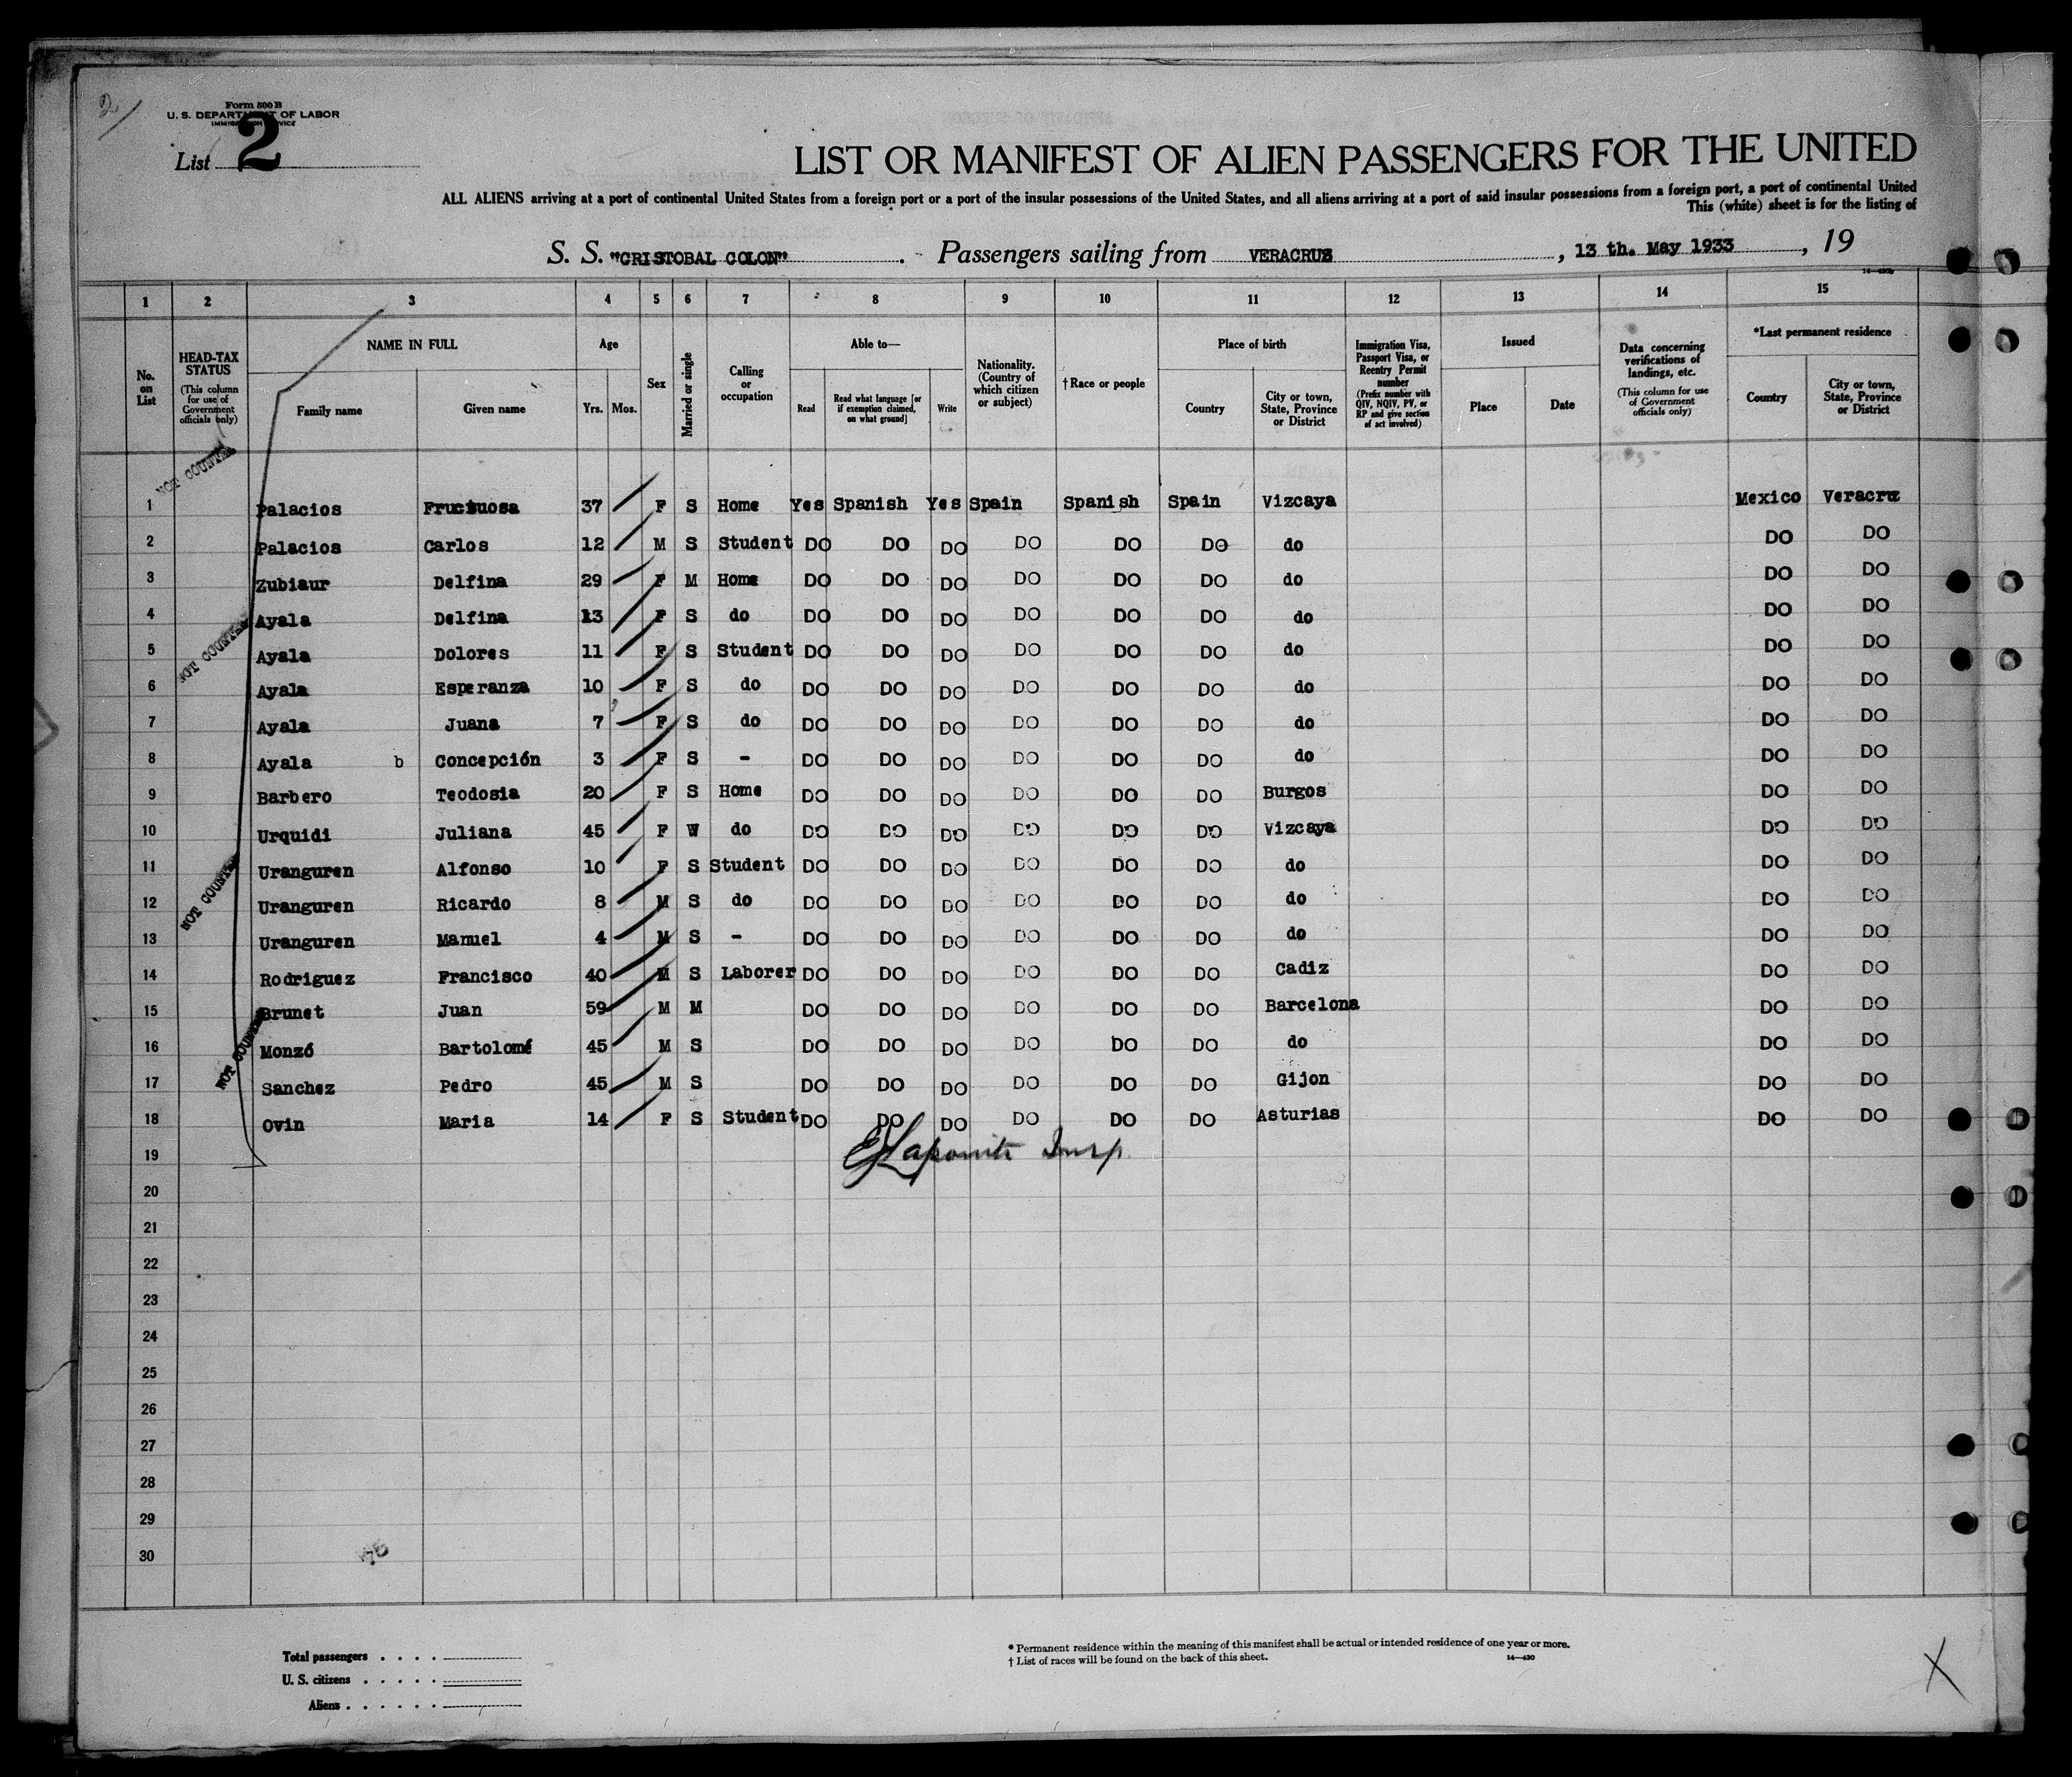 2/
Form 500 B
U. S. DEPARTMENT OF LABOR
IMMIGRATION SERVICE
List 2
LIST OR MANIFEST OF ALIEN PASSENGERS FOR THE UNITED
ALL ALIENS arriving at a port of continental United States from a foreign port or a port of the insular possessions of the United States, and all aliens arriving at a port of said insular possessions from a foreign port, a port of continental United
This (white) sheet is for the listing of
S. S. "CRISTOBAL COLON" . Passengers sailing from VERACRUZ , 13 th. May 1933 , 19
14—430b
1 2 3 4 5 6 7 8 9 10 11 12 13 14 15
No. on List
HEAD-TAX STATUS (This column for use of Government officials only)
NAME IN FULL
Family name Given name
Age
Yrs. Mos.
Sex
Married or single
Calling or occupation
Able to—
Read Read what language [or if exemption claimed, on what ground] Write
Nationality. (Country of which citizen or subject)
†Race or people
Place of birth
Country City or town, State, Province or District
Immigration Visa, Passport Visa, or Reentry Permit number (Prefix number with QIV, NQIV, PV, or RP and give section of act involved)
Issued
Place Date
Data concerning verifications of landings, etc. (This column for use of Government officials only)
*Last permanent residence
Country City or town, State, Province or District
NOT COUNTED
1 Palacios Fructuosa 37 F S Home Yes Spanish Yes Spain Spanish Spain Vizcaya Mexico Veracruz
2 Palacios Carlos 12 M S Student DO DO DO DO DO DO do DO DO
3 Zubiaur Delfina 29 F M Home DO DO DO DO DO DO do DO DO
4 Ayala Delfina 13 F S do DO DO DO DO DO DO do DO DO
NOT COUNTED
5 Ayala Dolores 11 F S Student DO DO DO DO DO DO do DO DO
6 Ayala Esperanza 10 F S do DO DO DO DO DO DO do DO DO
7 Ayala Juana 7 F S do DO DO DO DO DO DO do DO DO
8 Ayala b Concepción 3 F S - DO DO DO DO DO DO do DO DO
9 Barbero Teodosia 20 F S Home DO DO DO DO DO DO Burgos DO DO
10 Urquidi Juliana 45 F W do DO DO DO DO DO DO Vizcaya DO DO
11 Uranguren Alfonso 10 F S Student DO DO DO DO DO DO do DO DO
NOT COUNTED
12 Uranguren Ricardo 8 M S do DO DO DO DO DO DO do DO DO
13 Uranguren Manuel 4 M S - DO DO DO DO DO DO do DO DO
14 Rodriguez Francisco 40 M S Laborer DO DO DO DO DO DO Cadiz DO DO
15 Brunet Juan 59 M M DO DO DO DO DO DO Barcelona DO DO
NOT COUNTED
16 Monzó Bartolomé 45 M S DO DO DO DO DO DO do DO DO
17 Sanchez Pedro 45 M S DO DO DO DO DO DO Gijon DO DO
18 Ovin Maria 14 F S Student DO DO DO DO DO DO Asturias DO DO
19 Insp.
20
21
22
23
24
25
26
27
28
29
30
Total passengers . . . .
U. S. citizens . . . . .
Aliens . . . . . .
* Permanent residence within the meaning of this manifest shall be actual or intended residence of one year or more.
† List of races will be found on the back of this sheet.
14—430
X